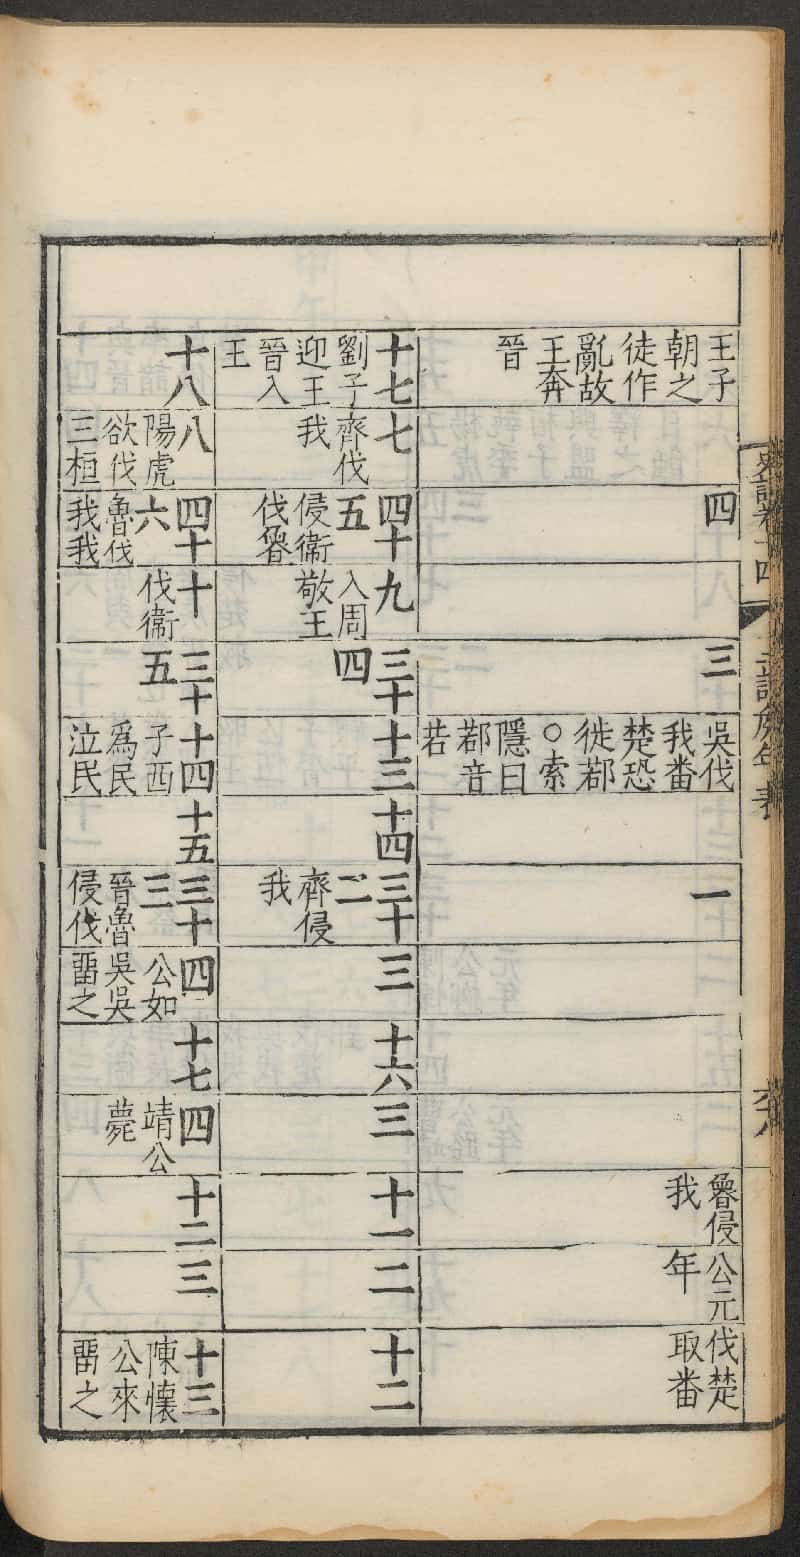 史記卷十四
王子
朝之
徒作
亂故
王奔
晉
四
三
吳伐
我番
楚恐
徙鄀
○索
隱曰
鄀音
若
一
魯侵
我
公元
年
伐楚
取番
十七
劉子
迎王
晉入
王
七
齊伐
我
四十
五
侵衞
伐魯
九
入周
敬王
三十
四
十三
十四
三十
二
齊侵
我
三
十六
三
十一
二
十二
十八
八
陽虎
欲伐
三桓
四十
六
魯伐
我我
十
伐衞
三十
五
十四
子西
爲民
泣民
十五
三十
三
晉魯
侵伐
四
公如
吳吳
畱之
十七
四
靖公
薨
十二
三
十三
陳懷
公來
畱之